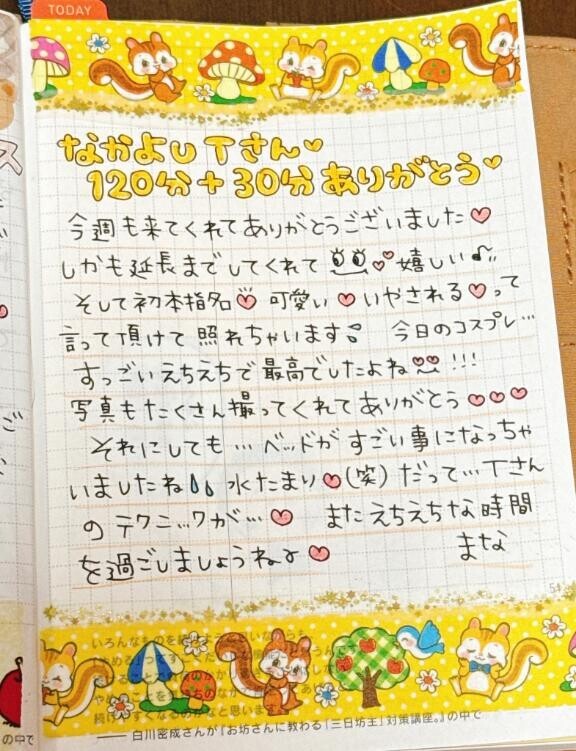 TODAY
なかよし Tさん♡
120分+30分ありがとう♡
今週も来てくれてありがとうございました♡
しかも延長までしてくれて 嬉しい♪
そして初本指名♡ 可愛い♡いやされる♡って
言って頂けて 照れちゃいます 今日のコスプレ…
すっごいえちえちで最高でしたよね!!!
写真もたくさん撮ってくれてありがとう♡♡♡
それにしても…ベッドがすごい事になっちゃ
いましたね 水たまり♡(笑) だって…Tさん
のテクニックが…♡ またえちえちな時間
を過ごしましょうね♡
まな
51
白川密成さんが『お坊さんに教わる「三日坊主」対策講座。』の中で
の中で